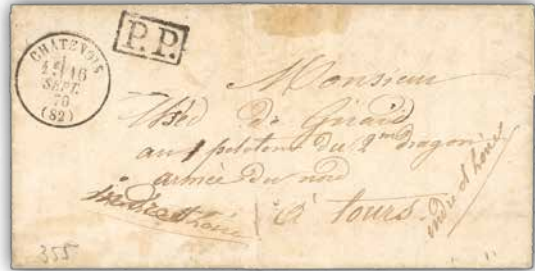 CHATENOIS
16
SEPT.
70
(82)
P.P.
Monsieur
Théd De Girard
au 1 peloton du 2me dragon
armée du nord
à tours
indre et Loire
355